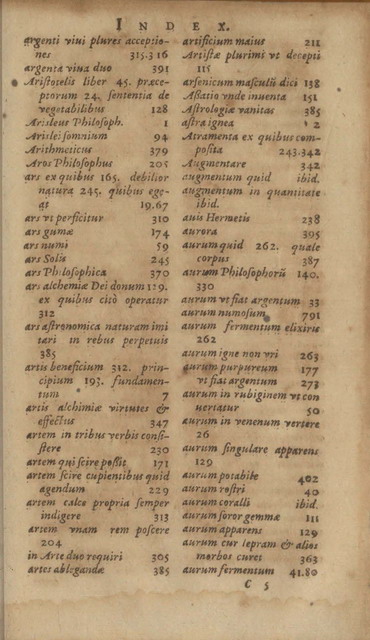 INDEX.
argenti vivi plures acceptio-
nes 315.316
argenta viua duo 391
Aristotelis liber 45. præce-
ptorum 24. sententia de
vegetabilibus 128
Arisleus Philosoph. 1
Arislei somnium 94
Arithmeticus 379
Aros Philosophus 205
ars ex quibus 165. debilior
natura 245. quibus ege-
at 19.67
ars vt perficitur 310
ars gumæ 174
ars numi 59
ars Solis 245
ars Philosophica 370
ars alchemiæ Dei donum 129.
ex quibus citò operatur
312
ars astronomica naturam imi
tari in rebus perpetuis
385
artis beneficium 312. prin-
cipium 193. fundamen-
tum 7
artis alchimiæ virtutes &
effectus 347
artem in tribus verbis consi-
stere 230
artem qui scire possit 171
artem scire cupientibus quid
agendum 229
artem calce propria semper
indigere 313
artem vnam rem poscere
204
in Arte duo requiri 305
artes ablegandæ 385
artificium maius 211
Artistæ plurimi vt decepti
115
arsenicum masculū dici 138
Assatio vnde inuenta 151
Astrologiæ vanitas 385
astra ignea 2
Atramenta ex quibus com-
posita 243.342
Augmentare 342
augmentum quid ibid.
augmentum in quantitate
ibid.
auis Hermetis 238
aurora 395
aurum quid 262. quale
corpus 387
aurum Philosophorū 140.
330
aurum vt fiat argentum 33
aurum numosum 791
aurum fermentum elixiris
262
aurum igne non vri 263
aurum purpureum 177
vt fiat argentum 273
aurum in rubiginem vt con
uertatur 50
aurum in venenum vertere
26
aurum singulare apparens
129
aurum potabile 402
aurum rostri 40
aurum coralli ibid.
aurum soror gemmæ 111
aurum apparens 129
aurum cur lepram & alios
morbos curet 363
aurum fermentum 41.80
C 5